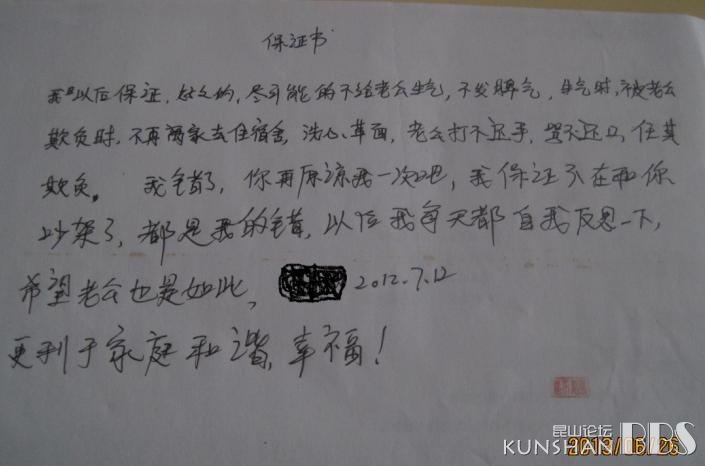 保证书
我以后保证,好好的,尽可能的不给老公生气,不发脾气,生气时,被老公
欺负时,不再离家去住宿舍,洗心革面,老公打不还手,骂不还口,任其
欺负。我错了,你再原谅我一次吧,我保证不在和你
吵架了,都是我的错,以后我每天都自我反思一下,
希望老公也是如此, 2012.7.12
更利于家庭和谐,幸福!
昆山论坛
KUNSHAN BBS
2013/05/26